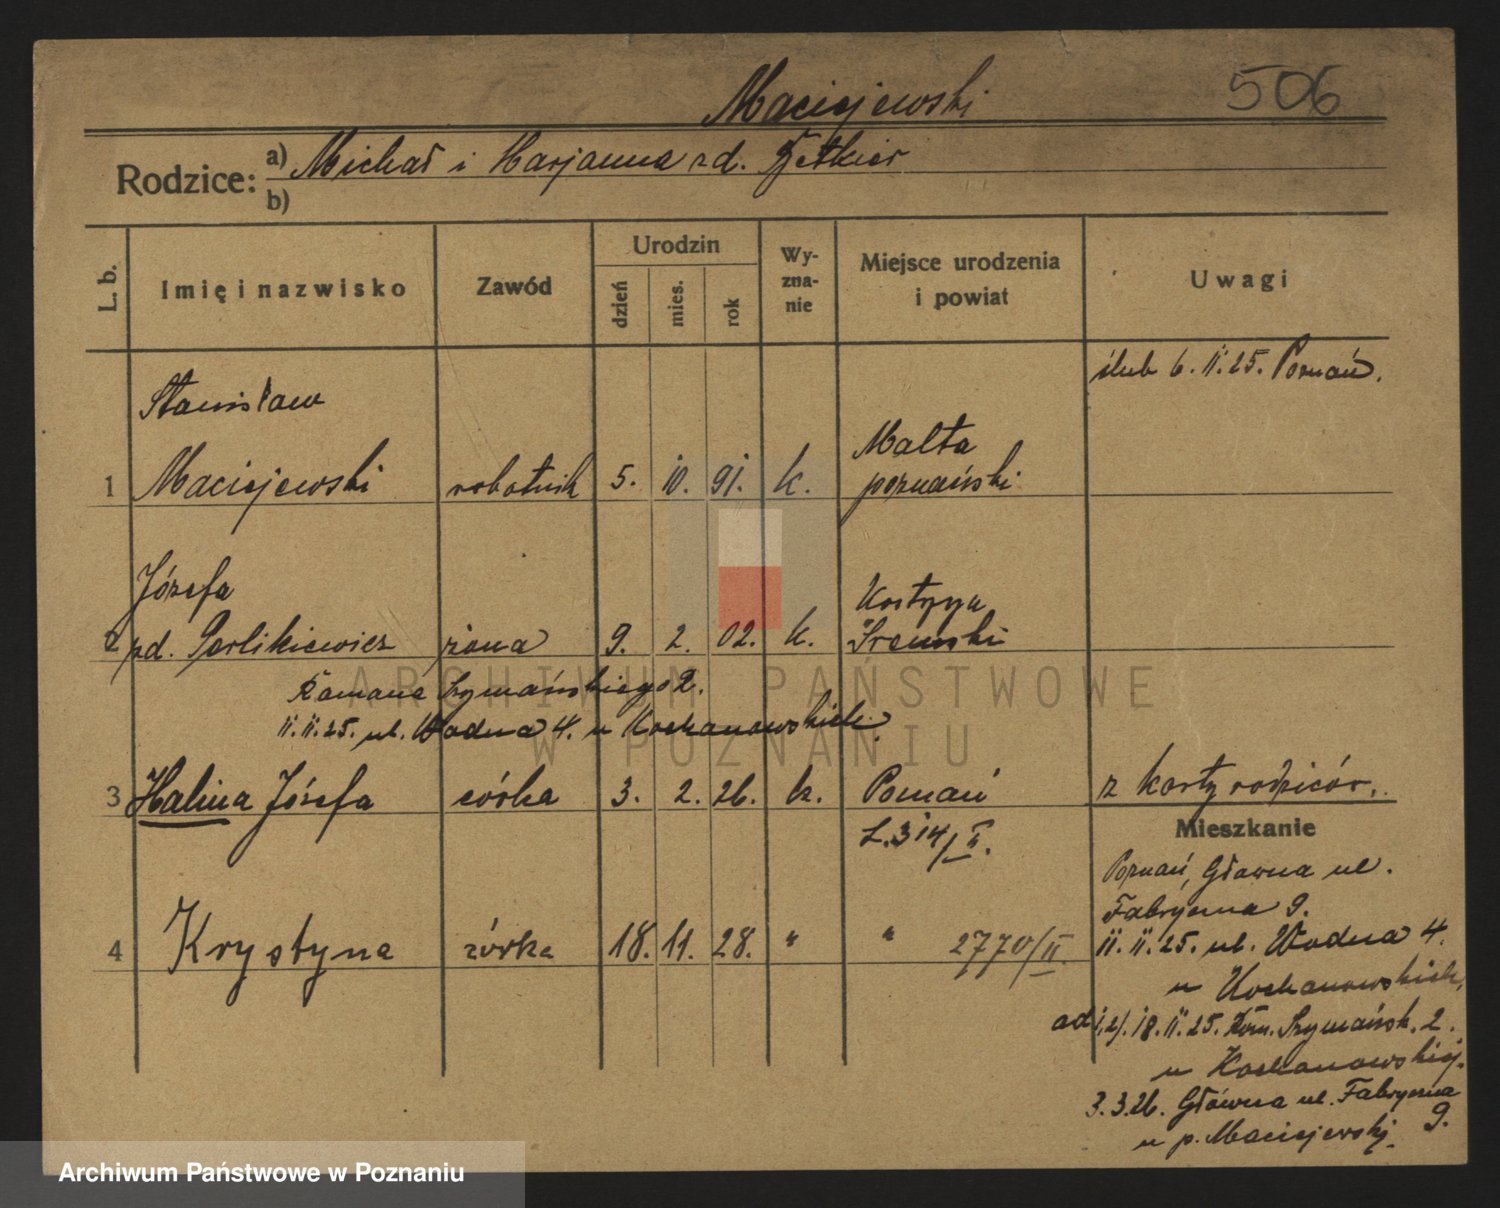 Maciejewski
506
Rodzice: a) Michał i Marjanna zd.
b)
L. b.
Imię i nazwisko
Zawód
Urodzin
dzień
mies.
rok
Wy-
zna-
nie
Miejsce urodzenia
i powiat
Uwagi
ślub 6. II. 25. Poznań.
Stanisław
1 Maciejewski robotnik 5. 10. 91. k. Malta
poznański
Józefa
2 zd. Perlikiewicz żona 9. 2. 02. k. Kostrzyn
Śremski
Romana Szymańskiego 2.
II. II. 25. ul. Wodna 4. u Kochanowskich.
3 Halina Józefa córka 3. 2. 26. k. Poznań z karty rodziców.
L. 314/II.
4 Krystyna córka 18. 11. 28. " " 2770/II.
Mieszkanie
Poznań, Główna ul.
Fabryczna 9.
II. II. 25. ul. Wodna 4.
u Kochanowskich,
ad 1,2/. 18. II. 25. Rom. Szymańsk. 2.
u Kochanowskiej.
3. 3. 26. Główna ul. Fabryczna
9.
u p. Maciejewskj.
ARCHIWUM PAŃSTWOWE
W POZNANIU
Archiwum Państwowe w Poznaniu